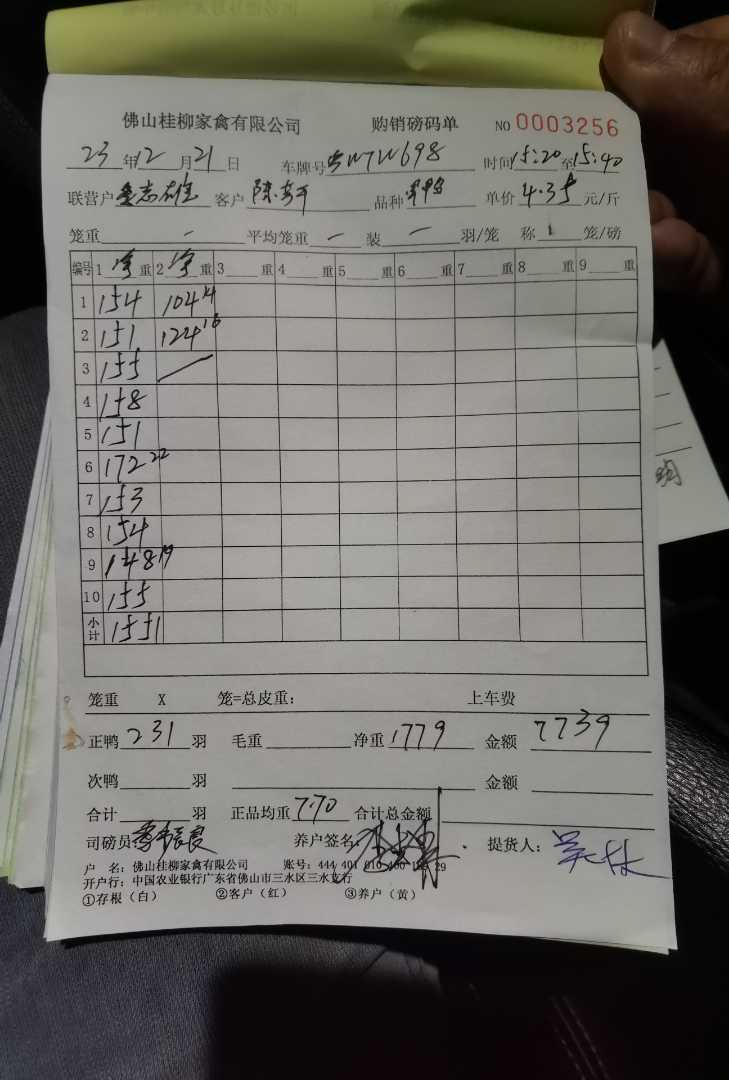 佛山桂柳家禽有限公司 购销磅码单 NO 0003256
23年12月21日 车牌号 W7W698 时间15:20至15:40
联营户 志雄 客户 陈 品种 单价4.35元/斤
笼重 - 平均笼重 - 装 - 羽/笼 称 1 笼/磅
编号 1 净 重 2 净 重 3 重 4 重 5 重 6 重 7 重 8 重 9 重
1 154 104 14
2 151 124 16
3 155
4 158
5 151
6 172 22
7 153
8 154
9 148 19
10 155
小计 1551
笼重 X 笼=总皮重: 上车费
正鸭 231 羽 毛重 净重 1779 金额 7739
次鸭 羽 金额
合计 羽 正品均重 7.70 合计总金额
司磅员 养户签名: 提货人:
户 名: 佛山桂柳家禽有限公司 账号: 444 401 010 400 29
开户行: 中国农业银行广东省佛山市三水区三水支行
①存根(白) ②客户(红) ③养户(黄)